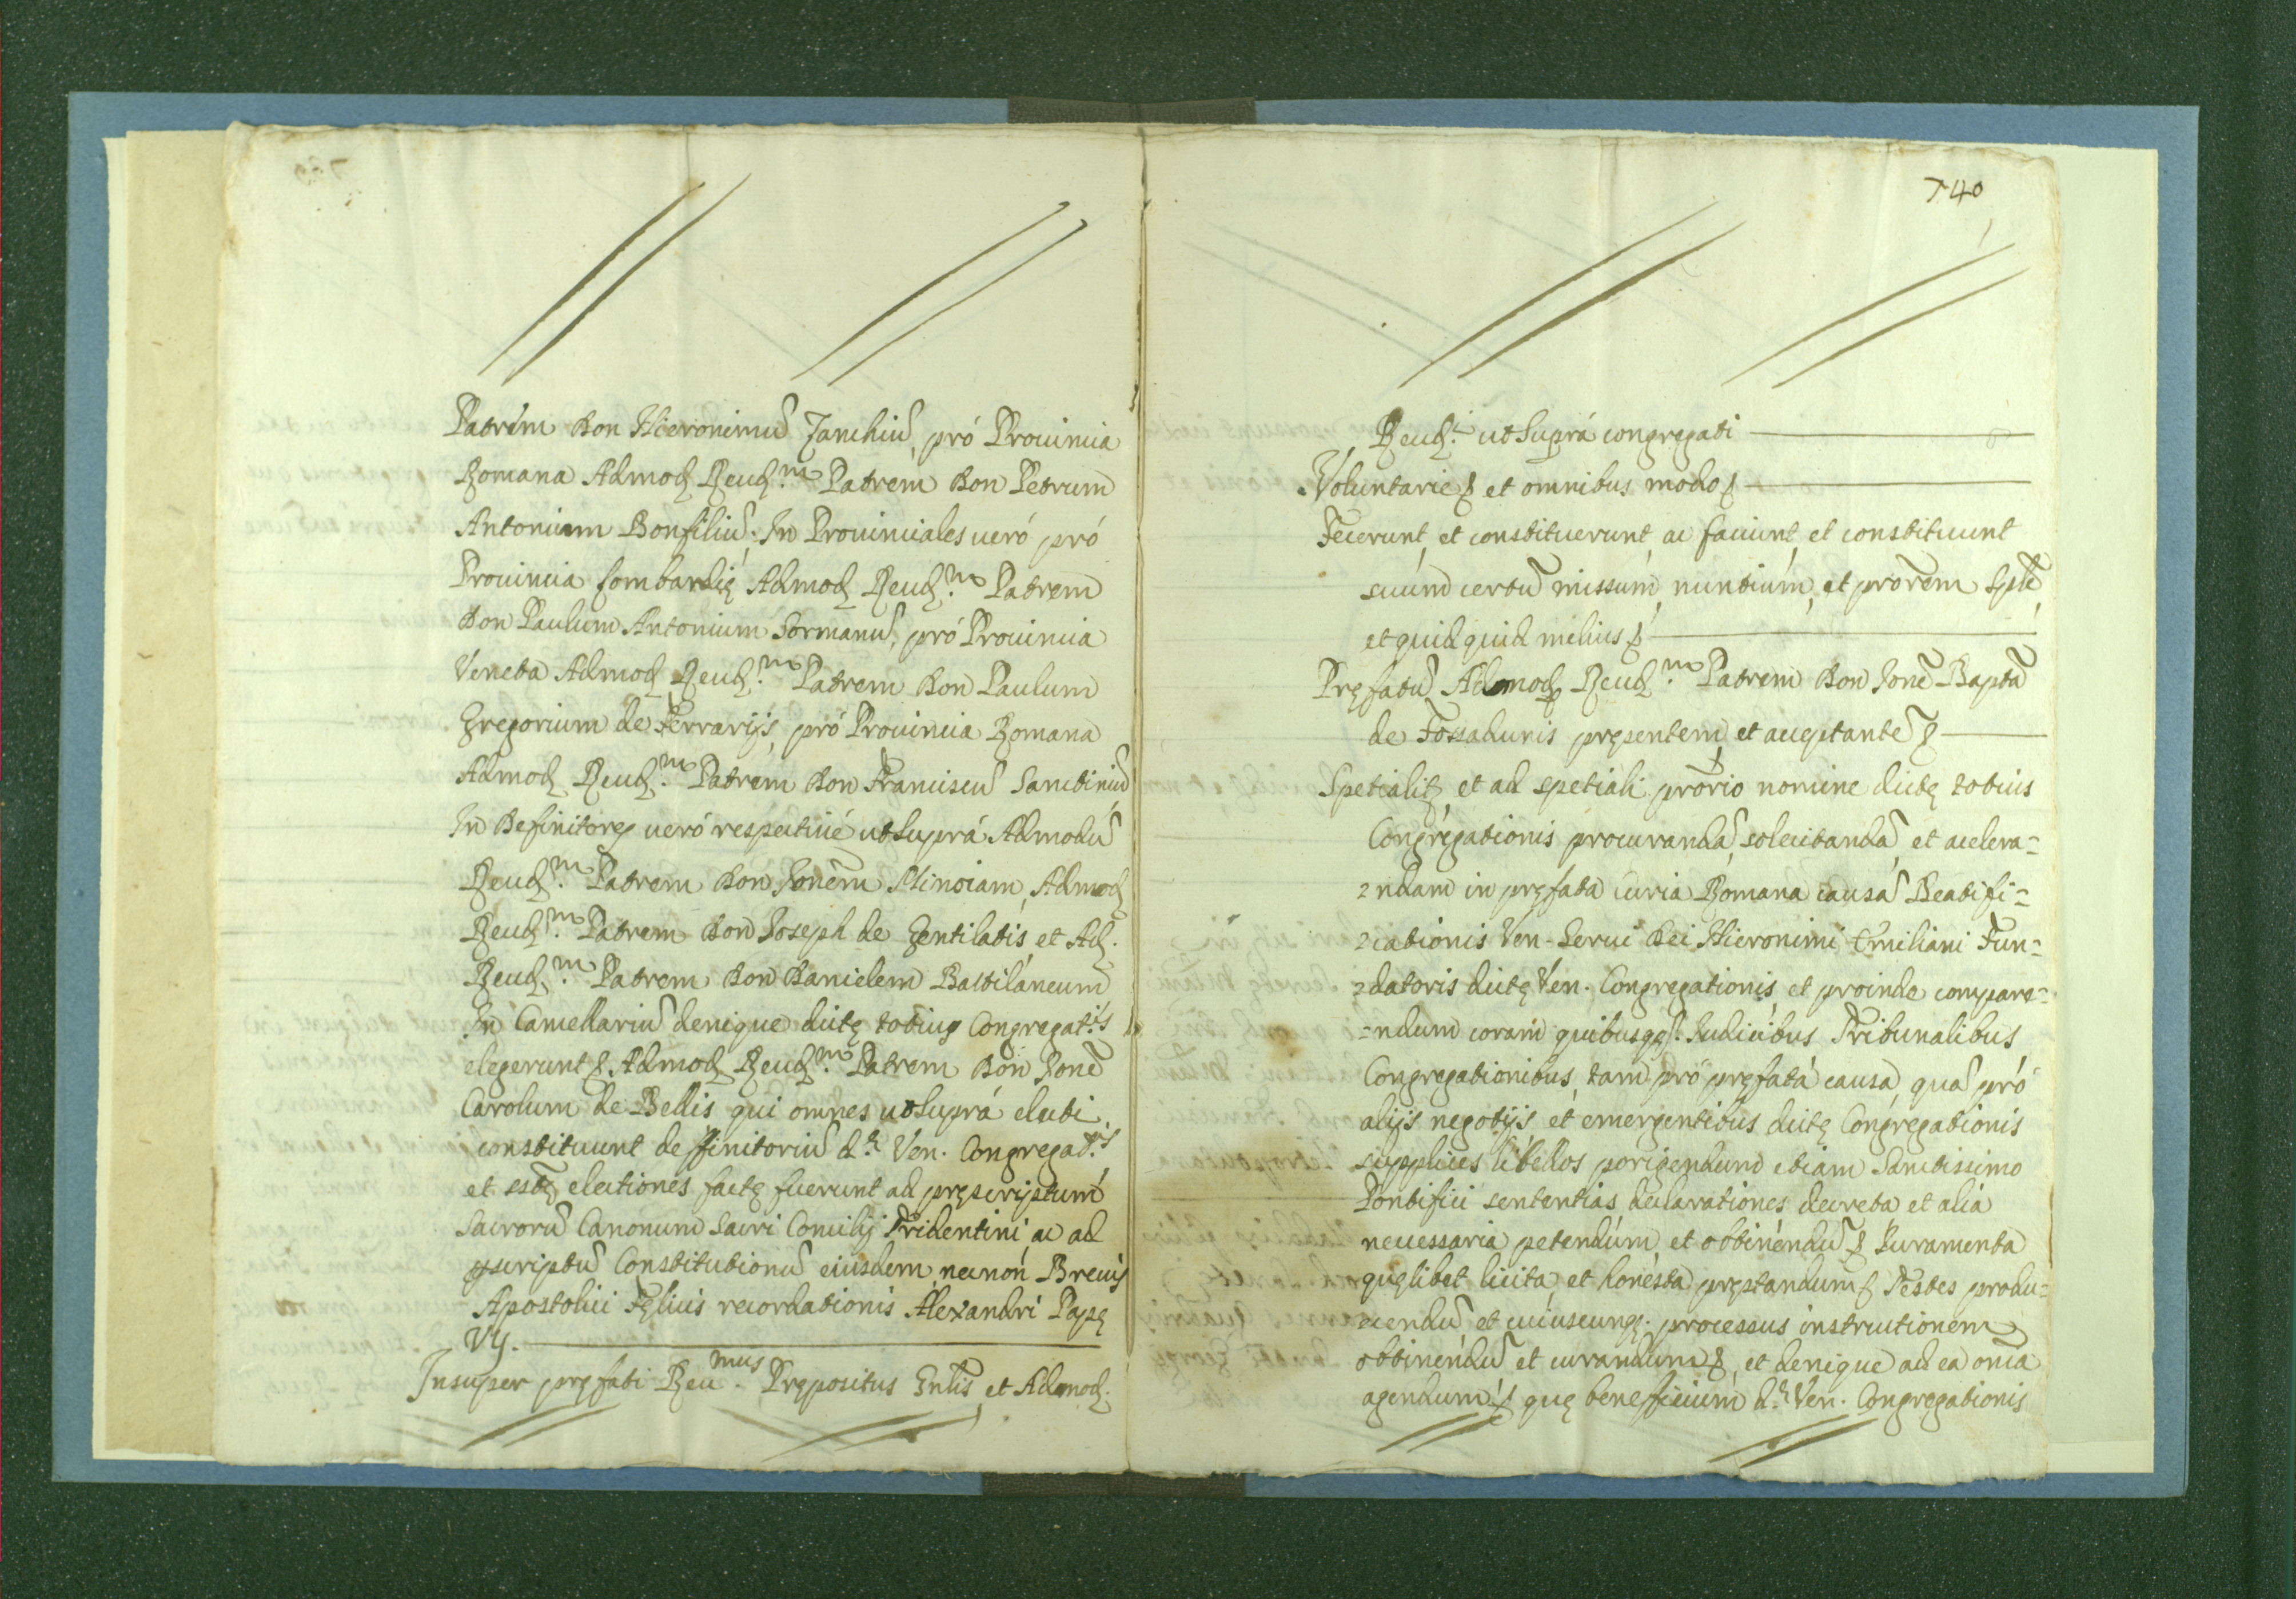 Patrem Don Hieronimũ Zanchiũ, pró Prouincia
Romana Admod Reud.m Patrem Don Petrum
Antonium Bonfiliũ. In Prouinciales ueró pró
Prouincia Lombardię Admod Reud.m Patrem
Don Paulum Antonium Sormanũ, pró Prouincia
Veneta Admod Reud.m Patrem Don Paulum
Gregorium de Ferrarijs, pró Prouincia Romana
Admod Reud.m Patrem Don Franciscũ Sanctiniũ
In Definitores ueró respectiué ut Suprá Admodũ
Reud.m Patrem Don Jonem Minoiam, Admod
Reud.m Patrem Don Joseph de Gentilatis, et Ad.
Reud.m Patrem Don Danielem Bastiláneum
In Cancellariũ denique dictę totius Congregat.is
elegerunt & Admod Reud.m Patrem Don Jonẽ
Carolum de Bellis qui omnes ut Suprá electi
constituunt deffinitoriũ d.ę Ven. Congregat.is
et electiones factę fuerunt ad pręscriptum
Sacrorũ Canonum Sacri Concilij Tridentini, ac ad
pscriptũ Constitutionũ eiusdem, necnon Breuis
Apostolici Fęlicis recordationis Alexandri Papę
VII.
Insuper pręfati Reu.mus Prępositus Gnlis, et Admod.
740
Reud.i ut Suprá congregati
Voluntarie & et omnibus modo &
Fecerunt, et constituerunt, ac faciunt, et constituunt
suum certũ missum, nuntium, et prorem Splẽ,
et quid quid melius &
Pręfatũ Admod Reud.m Patrem Don Jonẽ Baptã
de Fossadunis pręsentem, et acceptantẽ &
Spetialit, et ad spetiali prorio nomine dictę totius
Congregationis procurandã, solecitandã, et accelera=
=ndam in pręfata Curia Romana causã Beatifi=
=cationis Ven. Serui Dei Hieronimi Emiliani Fun=
=datoris dictę Ven. Congregationis, et proinde compare=
=ndum coram quibusqs. Iudicibus Tribunalibus
Congregationibus, tam pró pręfatá causa, quã pró
alijs negotijs et emergentibus dictę Congregationis
supplices libellos porigendum etiam Sanctissimo
Pontifici sententias declarationes decreta et alia
necessaria petendum, et obtinendũ & Iuramenta
quęlibet licita, et honesta pręstandum & Testes produ=
=cendũ, et cuiuscunq. processus instructionem
obtinendũ et curandum &, et denique ad ea onia
agendum & quę benefficium d.ę Ven. Congregationis